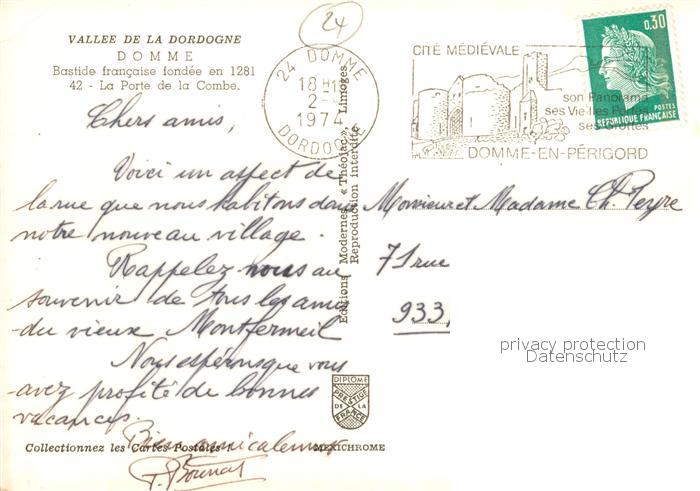 24
VALLEE DE LA DORDOGNE
DOMME
Bastide française fondée en 1281
42 - La Porte de la Combe.
24 DOMME
18 H
2-
1974
DORDOGNE
CITÉ MÉDIÉVALE
son Panorama
ses Vieilles Portes
ses Grottes
DOMME-EN-PÉRIGORD
0,30
POSTES
REPUBLIQUE FRANÇAISE
Chers amis,
Voici un aspect de
la rue que nous habitons dans
notre nouveau village.
Rappelez-nous au
souvenir de tous les amis
du vieux Montfermeil
Nous espérons que vous
avez profité de bonnes
vacances.
Bien amicalement
Editions Modernes « Théojac », Limoges
Reproduction Interdite
Monsieur et Madame Ch. Peyre
71 rue
933
privacy protection
Datenschutz
DIPLOME
PRESTIGE
DE LA
FRANCE
Collectionnez les Cartes Postales
MEXICHROME